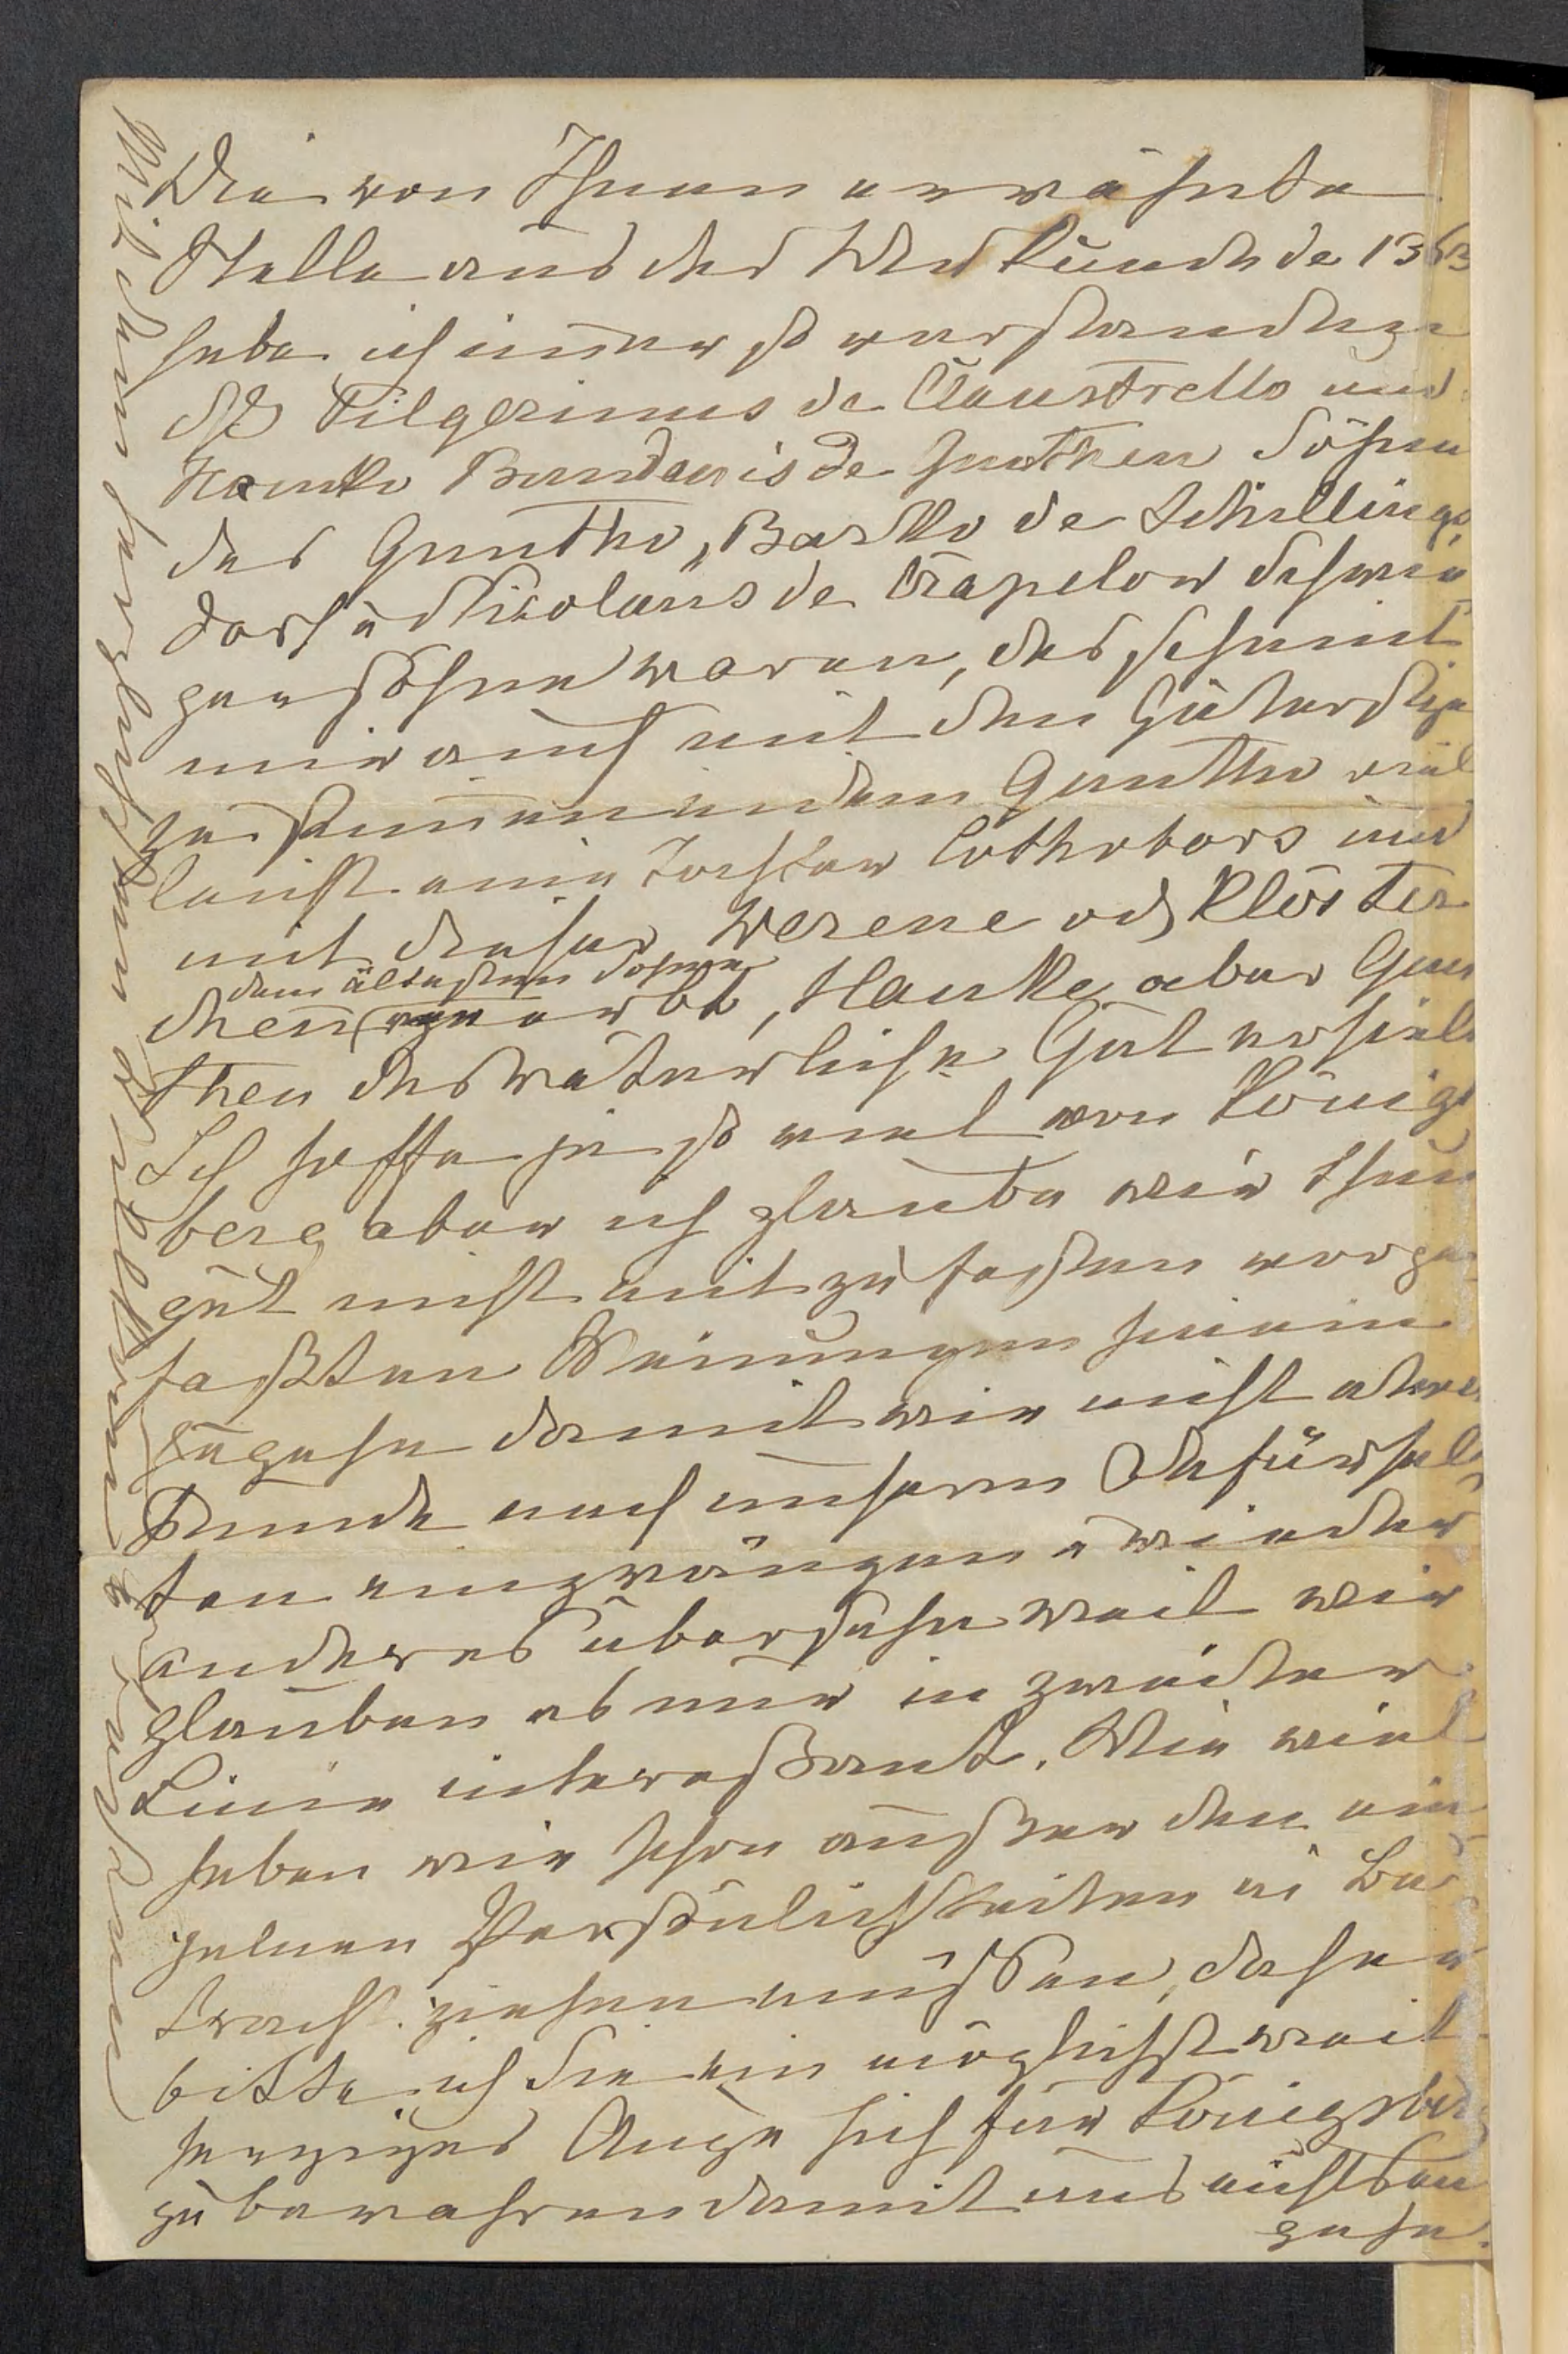 Die von Ihnen erwähnte
Stelle aus der Urkunde de 1363
habe ich immer so verstanden
daß Pilgerimus de Claustrello und
Hanke Bandewis de Gunthen Söhne
des Guntho, Bartko de Schilling
dorf u Nicolaus de Trapelow Schwie
gersöhne waren, das scheint
mir auch mit den Güterbesitz
zu stimmen indem Guntho viel
leicht eine Tochter Cothobors und
mit dieser Werene od Klöster
chen
dem ältesten Sohne
vererbt, Hanke aber Gun
then das väterliche Gut erhielt
Ich hoffe ja so viel von Königs
berg aber ich glaube wir thun
gut nicht mit zu festen vorge
faßten Meinungen hinein
zugehn damit wir nicht etwa
Funde nach unserm Dafürhal
ten einzwängen u wieder
anderes übersehn weil wir
glauben es nur in zweiter
Linie interessant. Wie viel
haben wir schon außer den ein
zelnen Persönlichkeiten in Be
tracht ziehen müssen, daher
bitte ich Sie ein möglichst weit
herziges Auge sich für Königsberg
zu bewahren damit uns nichts ent
gehe.
Mit den herzlichsten